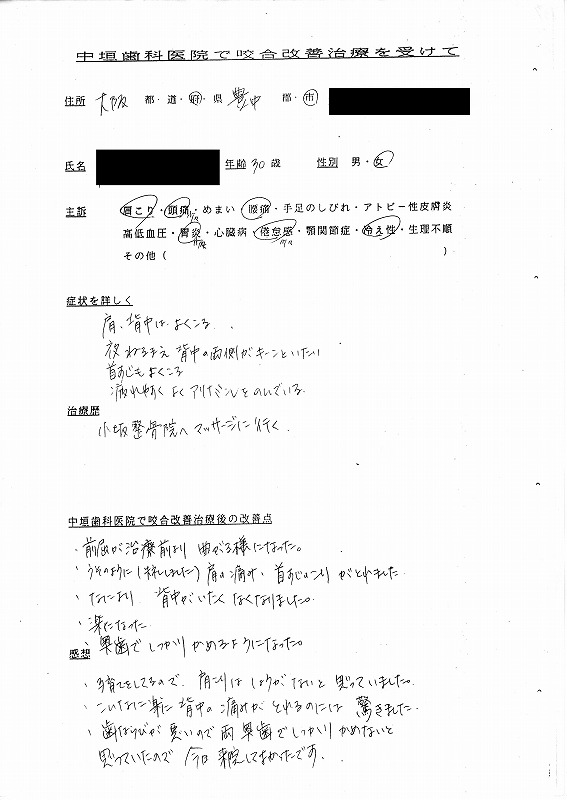 中垣歯科医院で咬合改善治療を受けて
住所 大阪 都・道・府・県 豊中 郡・市
氏名 年齢 30歳 性別 男・女
主訴 肩こり・頭痛・めまい・腰痛・手足のしびれ・アトピー性皮膚炎
高低血圧・胃炎・心臓病・倦怠感・顎関節症・冷え性・生理不順
その他( )
症状を詳しく
肩、背中はよくこる
夜ねるまえ背中の両側がキーンといたい
首すじもよくこる
疲れやすくよくアリナミンをのんでいる
治療歴
小坂整骨院へマッサージに行く
中垣歯科医院で咬合改善治療後の改善点
・前屈が治療前より曲がる様になった。
・うそのように( しました)肩の痛み、首すじのこりがとれました
・なにより、背中がいたくなくなりました。
・楽になった
・奥歯でしっかりかめるようになった。
感想
・子育てをしてるので、肩こりはしょうがないと思っていました。
・こんなに楽に背中の痛みがとれるのには驚きました
・歯ならびが悪いので両奥歯でしっかりかめないと
思っていたので今日来院してよかたです。